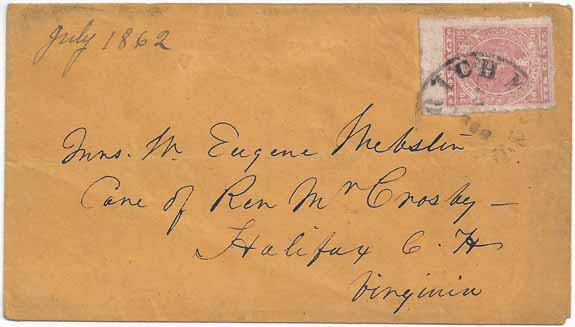 July 1862
RICH
Mrs. W. Eugene Webster
Care of Rev Mr Crosby —
Halifax C. H
Virginia